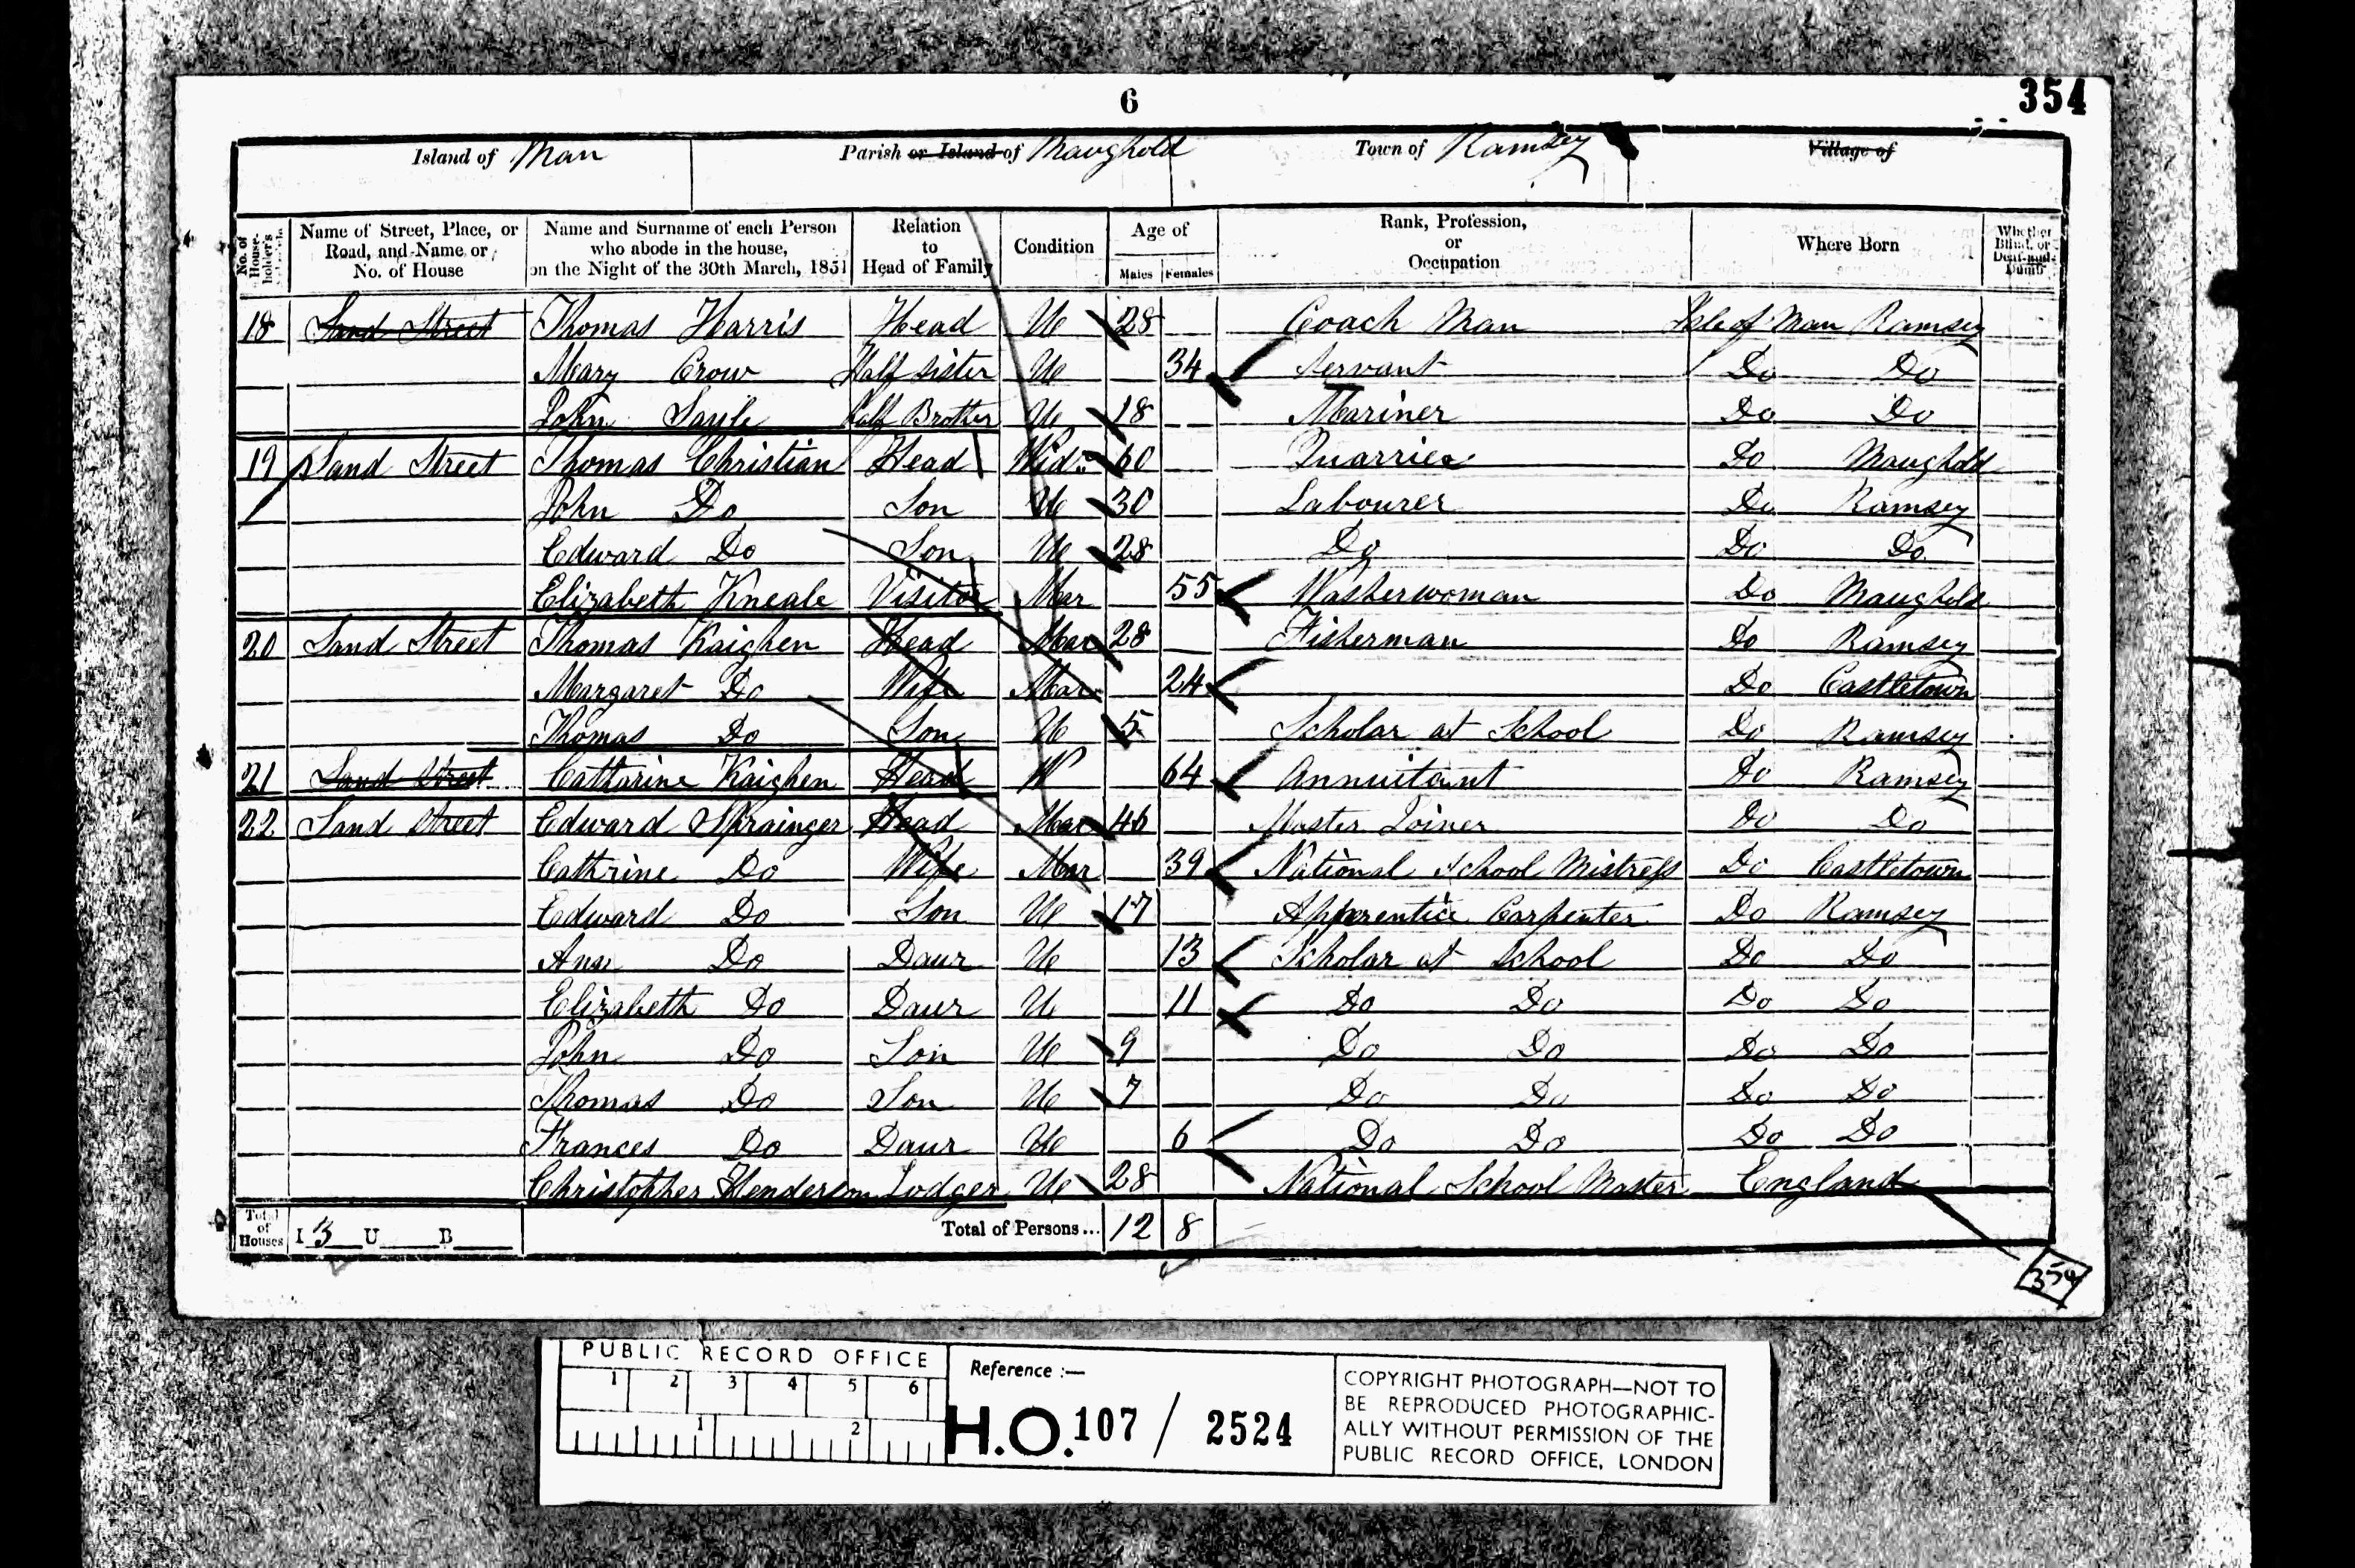 6
354
Island of Man Parish or Island of Maughold Town of Ramsey Village of
No. of House-holder's Name of Street, Place, or Road, and Name or No. of House Name and Surname of each Person who abode in the house, on the Night of the 30th March, 1851 Relation to Head of Family Condition Age of Males Females Rank, Profession, or Occupation Where Born Whether Blind, or Deaf-and-Dumb
18 Sand Street Thomas Harris Head Un 28 Coach Man Isle of Man Ramsey
Mary Crow Half sister Un 34 Servant Do Do
John Sayle half Brother Un 18 Mariner Do Do
19 Sand Street Thomas Christian Head Widr 60 Quarrier Do Maughold
John Do Son Un 30 Labourer Do Ramsey
Edward Do Son Un 28 Do Do Do
Elizabeth Kneale Visitor Mar 55 Washerwoman Do Maughold
20 Sand Street Thomas Kaighen Head Mar 28 Fisherman Do Ramsey
Margaret Do Wife Mar 24 Do Castletown
Thomas Do Son Un 5 Scholar at School Do Ramsey
21 Sand Street Catharine Kaighen Head W 64 Annuitant Do Ramsey
22 Sand Street Edward Sprainger Head Mar 46 Master Joiner Do Do
Cathrine Do Wife Mar 39 National School Mistress Do Castletown
Edward Do Son Un 17 Apprentice Carpenter Do Ramsey
Ann Do Daur Un 13 Scholar at School Do Do
Elizabeth Do Daur Un 11 Do Do Do Do
John Do Son Un 9 Do Do Do Do
Thomas Do Son Un 7 Do Do Do Do
Frances Do Daur Un 6 Do Do Do Do
Christopher Henderson Lodger Un 28 National School Master England
Total of Houses I 3 U B Total of Persons... 12 8
PUBLIC RECORD OFFICE
1 2 3 4 5 6
1 2
Reference :—
H.O. 107 / 2524
COPYRIGHT PHOTOGRAPH—NOT TO
BE REPRODUCED PHOTOGRAPHIC-
ALLY WITHOUT PERMISSION OF THE
PUBLIC RECORD OFFICE, LONDON